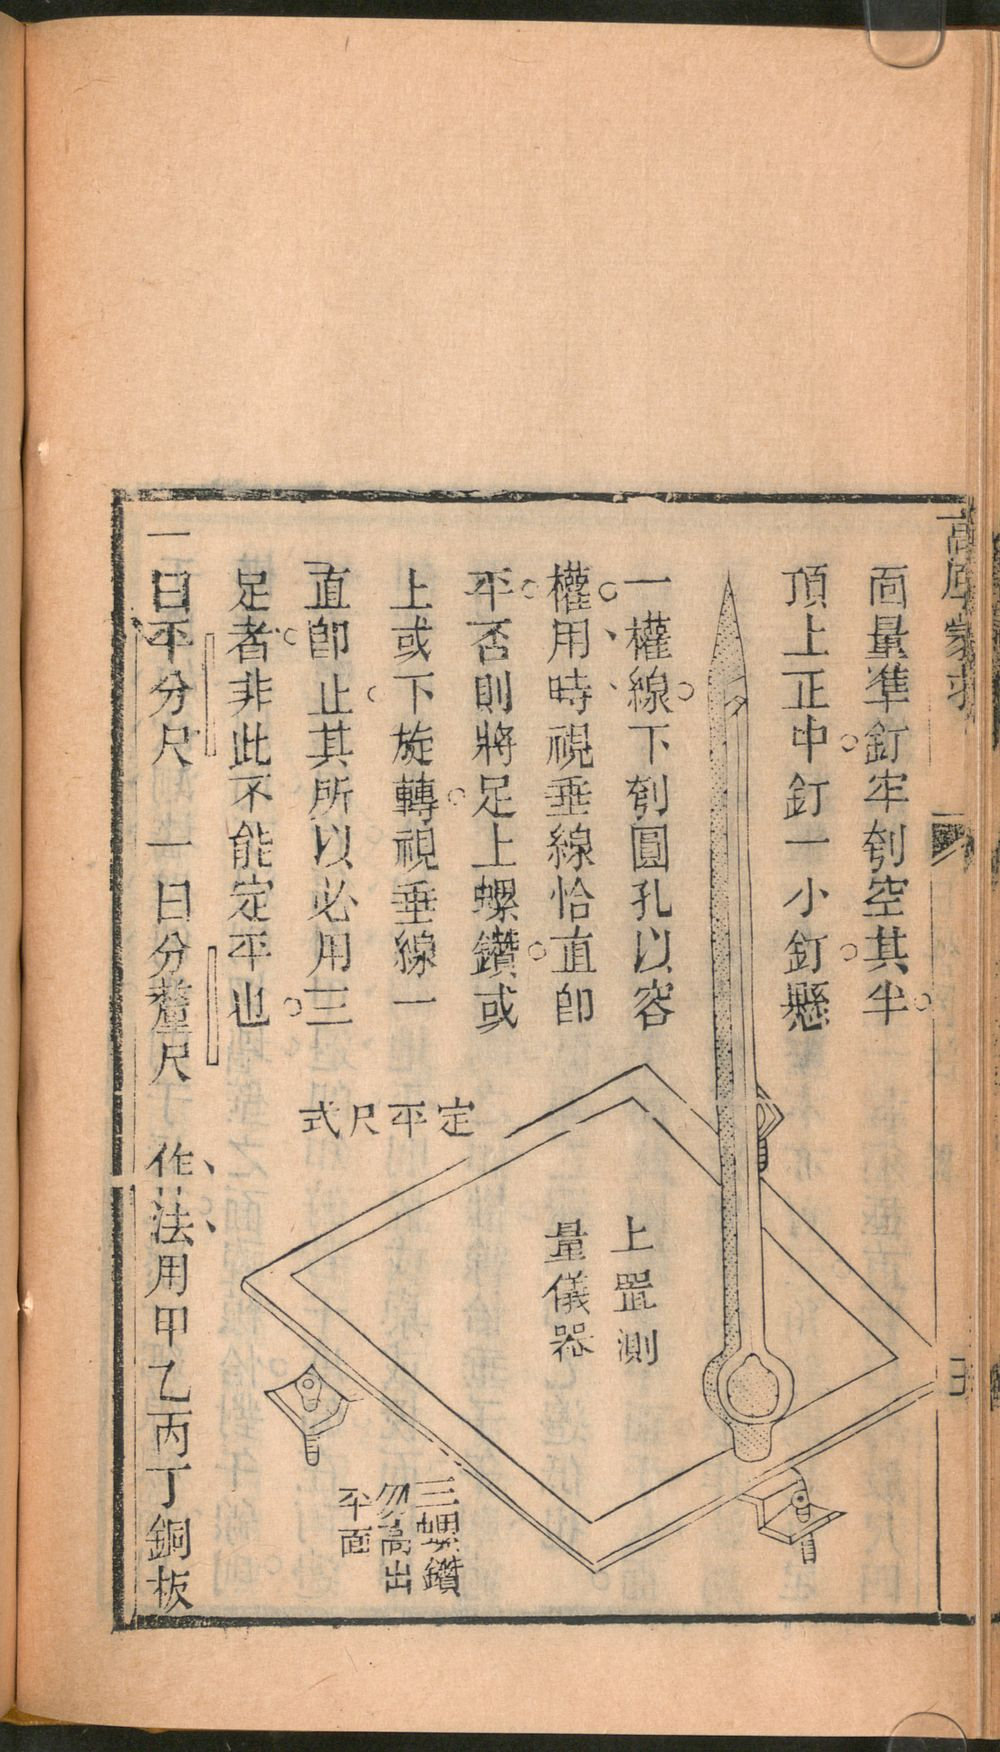 面量準釘牢刳空其半
頂上正中釘一小釘懸
一權線下刳圓孔以容
權用時視垂線恰直卽
平否則將足上螺鑽或
上或下旋轉視垂線一
直卽止其所以必用三
足者非此不能定平也
一曰平分尺一曰分釐尺 作法用甲乙丙丁銅板
定平尺式
上置測
量儀器
三螺鑽
勿高出
平面